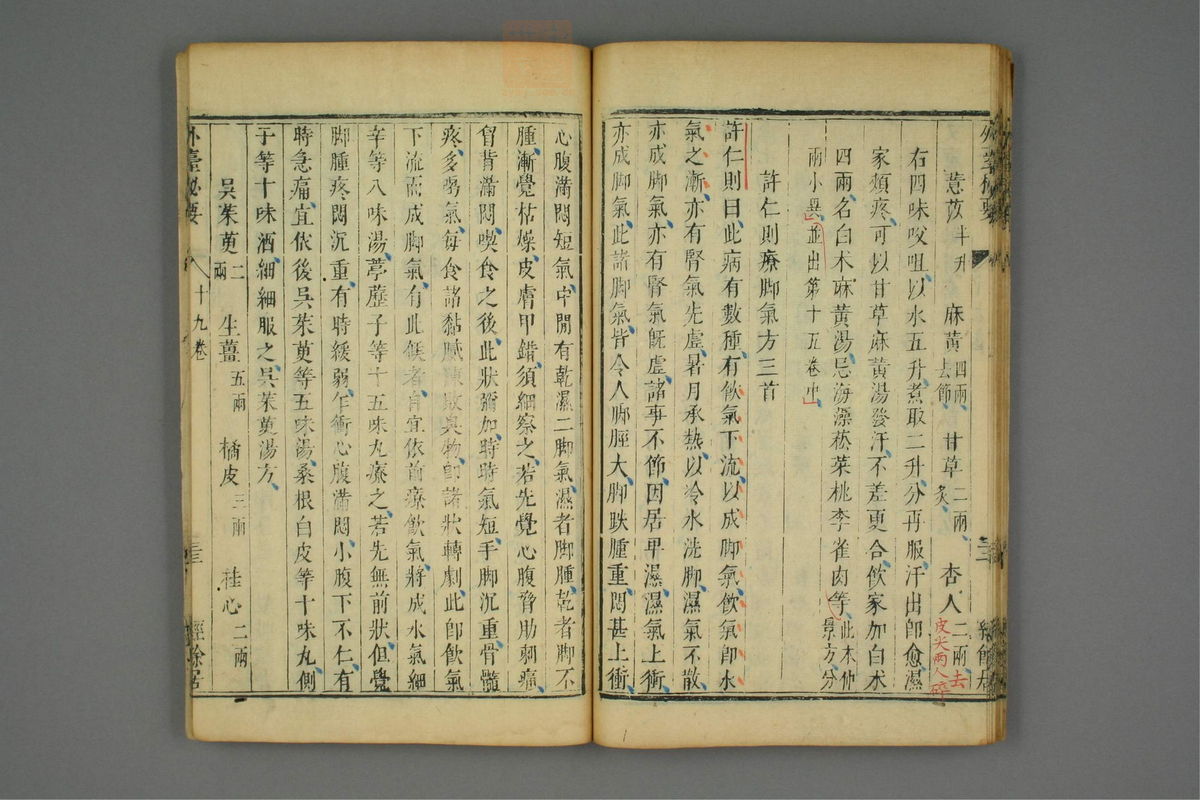 薏苡半升 麻黃四兩去節 甘草二兩炙 杏人二兩去皮尖兩人碎
右四味㕮咀以水五升煮取二升分再服汗出即愈濕
家頰疼可以甘草麻黃湯發汗不差更合飲家加白朮
四兩名白朮麻黃湯忌海藻菘菜桃李雀肉等此本仲景方分
兩小異並出第十五卷中
許仁則療脚氣方三首
許仁則曰此病有數種有飲氣下流以成脚氣飲氣即水
氣之漸亦有腎氣先虛暑月承熱以冷水洗脚濕氣不散
亦成脚氣亦有腎氣既虛諸事不節因居早濕濕氣上衝
亦成脚氣此諸脚氣皆令人脚脛大脚趺腫重悶甚上衝
心腹滿悶短氣中閒有乾濕二脚氣濕者脚腫乾者脚不
腫漸覺枯燥皮膚甲錯須細察之若先覺心腹脅肋刺痛
胷背滿悶喫食之後此狀彌加時時氣短手脚沉重骨髓
疼多嚼氣每食諸黏膩陳敗臭物即諸狀轉劇此即飲氣
下流而成脚氣有此候者自宜依前療飲氣將成水氣細
辛等八味湯葶藶子等十五味丸療之若先無前狀但覺
脚腫疼悶沉重有時緩弱乍衝心腹滿悶小腹下不仁有
時急痛宜依後吳茱萸等五味湯桑根白皮等十味丸側
子等十味酒細細服之吳茱萸湯方
吳茱萸二兩 生薑五兩 橘皮三兩 桂心二兩
外臺秘要 十九卷 三三 經餘居